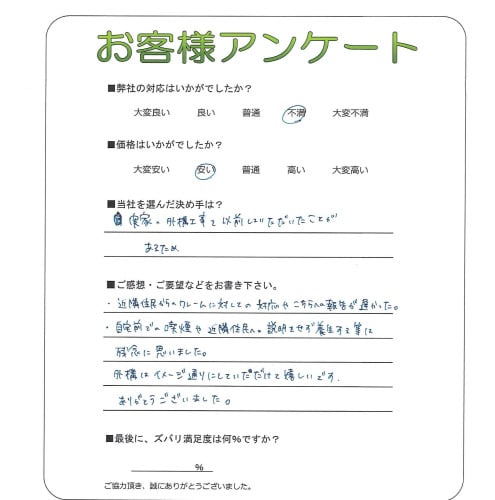 お客様アンケート
■弊社の対応はいかがでしたか？
大変良い 良い 普通 不満 大変不満
■価格はいかがでしたか？
大変安い 安い 普通 高い 大変高い
■当社を選んだ決め手は？
実家の外構工事で以前していただいたことが
あるため
■ご感想・ご要望などをお書き下さい。
・近隣住民からのクレームに対しての対応やこちらへの報告が遅かった。
・自宅前での喫煙や近隣住民への説明もせず養生する等は
残念に思いました。
外構はイメージ通りにしていただけて嬉しいです。
ありがとうございました。
■最後に、ズバリ満足度は何%ですか？
%
ご協力頂き、誠にありがとうございました。